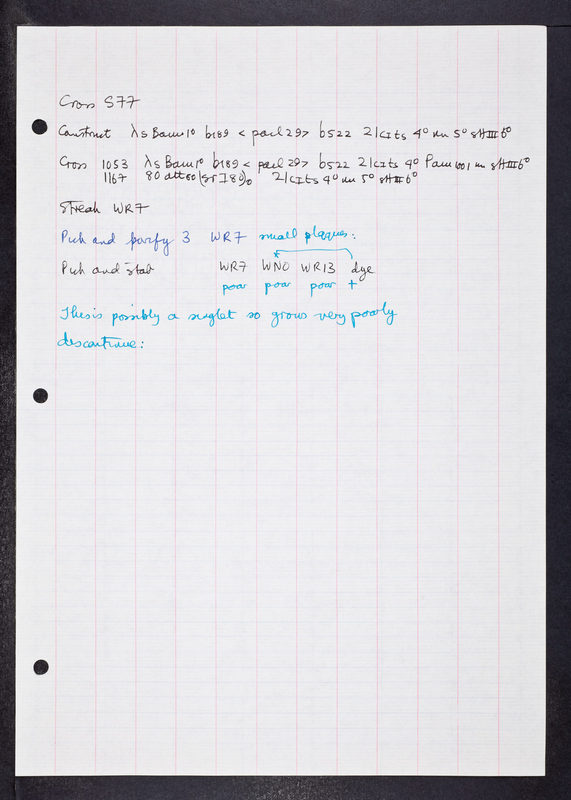 Cross S77
Construct λs Bam1° b189 < pacl 29> b522 21cIts 4° nin 5° sHIII6°
Cross 1053 λs Bam1° b189 < pacl 29> b522 21cIts 4° Pam1001 nin sHIII6°
1167 80 att80 (srI80)° 21cIts 4° nin 5° sHIII6°
Streak WR7
Pick and purify 3 WR7 small plaques:
Pick and stab WR7 WNO WR13 dye
poor poor poor +
This is possibly a singlet so grows very poorly
discontinue: